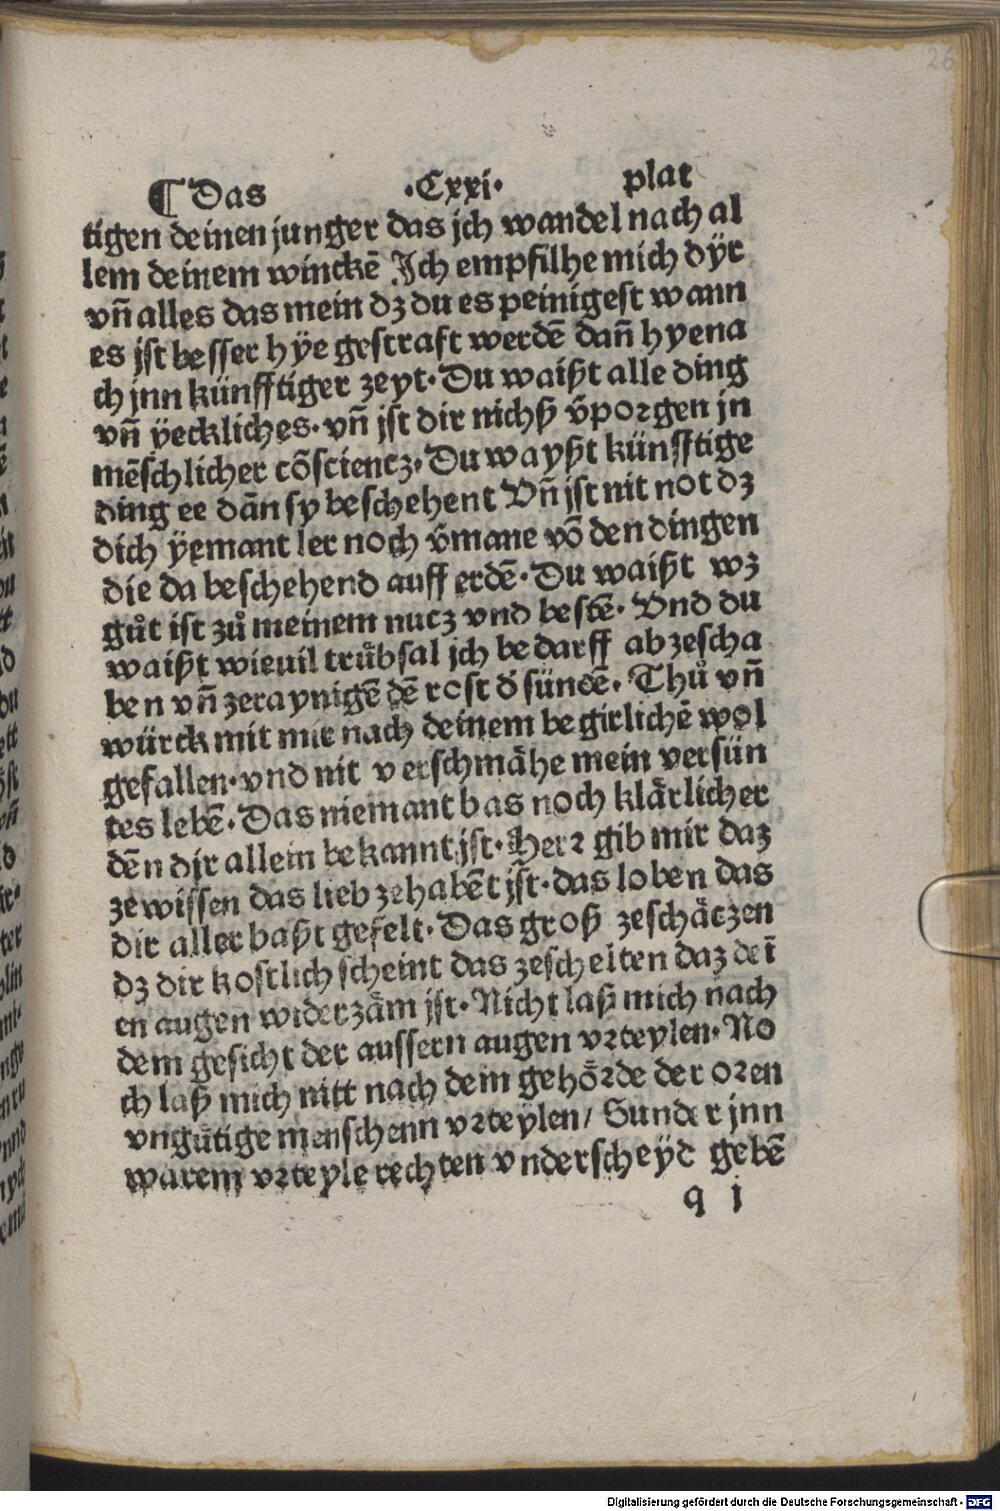 26
¶ Das ·Cxxi· plat
tigen deinen junger das jch wandel nach al
lem deinem winckē Jch empfilhe mich dÿr
vn̄ alles das mein dz du es peinigest wann
es jst besser hÿe gestraft werdē dan̄ hyena
ch jnn künfftiger zeyt· Du waißt alle ding
vn̄ ÿeckliches· vn̄ jst dir nichß v̄porgen jn
mēschlicher cōscientz· Du wayßt künfftige
ding ee dān sy beschehent Vn̄ jst nit not dz
dich ÿemant ler noch v̄mane vō den dingen
die da beschehend auff erdē· Du waißt wz
gůt ist zů meinem nutz vnd bestē· Vnd du
waißt wieuil trůbsal jch be darff ab zescha
ben vn̄ zeraynigē dē rost d̄ sündē· Thů vn̄
würck mit mir nach deinem be girlichē wol
gefallen· vnd nit verschmåhe mein versün
tes lebē· Das niemant bas noch klårlicher
dēn djr allein bekannt jst· Herr gib mir daz
ze wissen das lieb zehabēt jst· das loben das
dir aller baßt gefelt· Das groß zeschåtzen
dz dir kostlich scheint das zeschelten daz deī
en augen widerzåm jst· Nicht laß mich nach
dem gesicht der aussern augen vrteylen· No
ch laß mich nitt nach dem gehörde der oren
vngůtige menschenn vrteÿlen/ Sunder jnn
warem vrteyle rechten vnderscheÿd gebē
q j
Digitalisierung gefördert durch die Deutsche Forschungsgemeinschaft - DFG